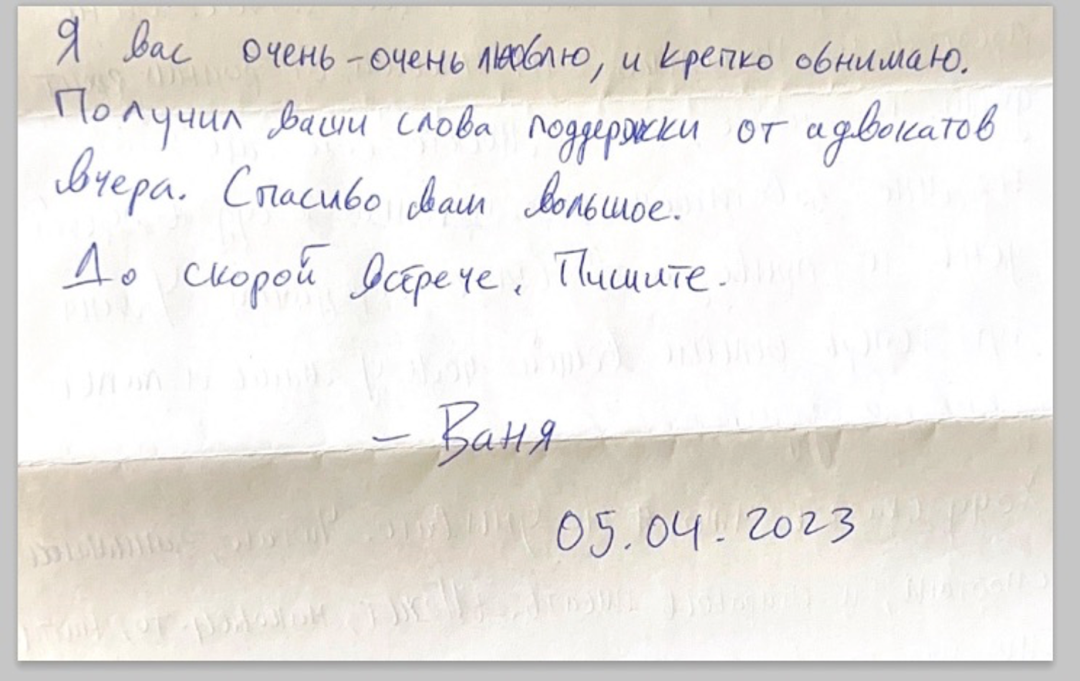 Я вас очень-очень люблю, и крепко обнимаю.
Получил ваши слова поддержки от адвокатов
вчера. Спасибо вам большое.
До скорой встрече. Пишите.
– Ваня
05.04.2023